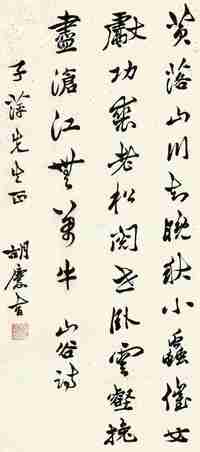 黄落山川知晚秋小虫催女
献功裘老松阅世卧云壑挽
尽沧江无万牛 山谷诗
子萍先生正 胡康吉